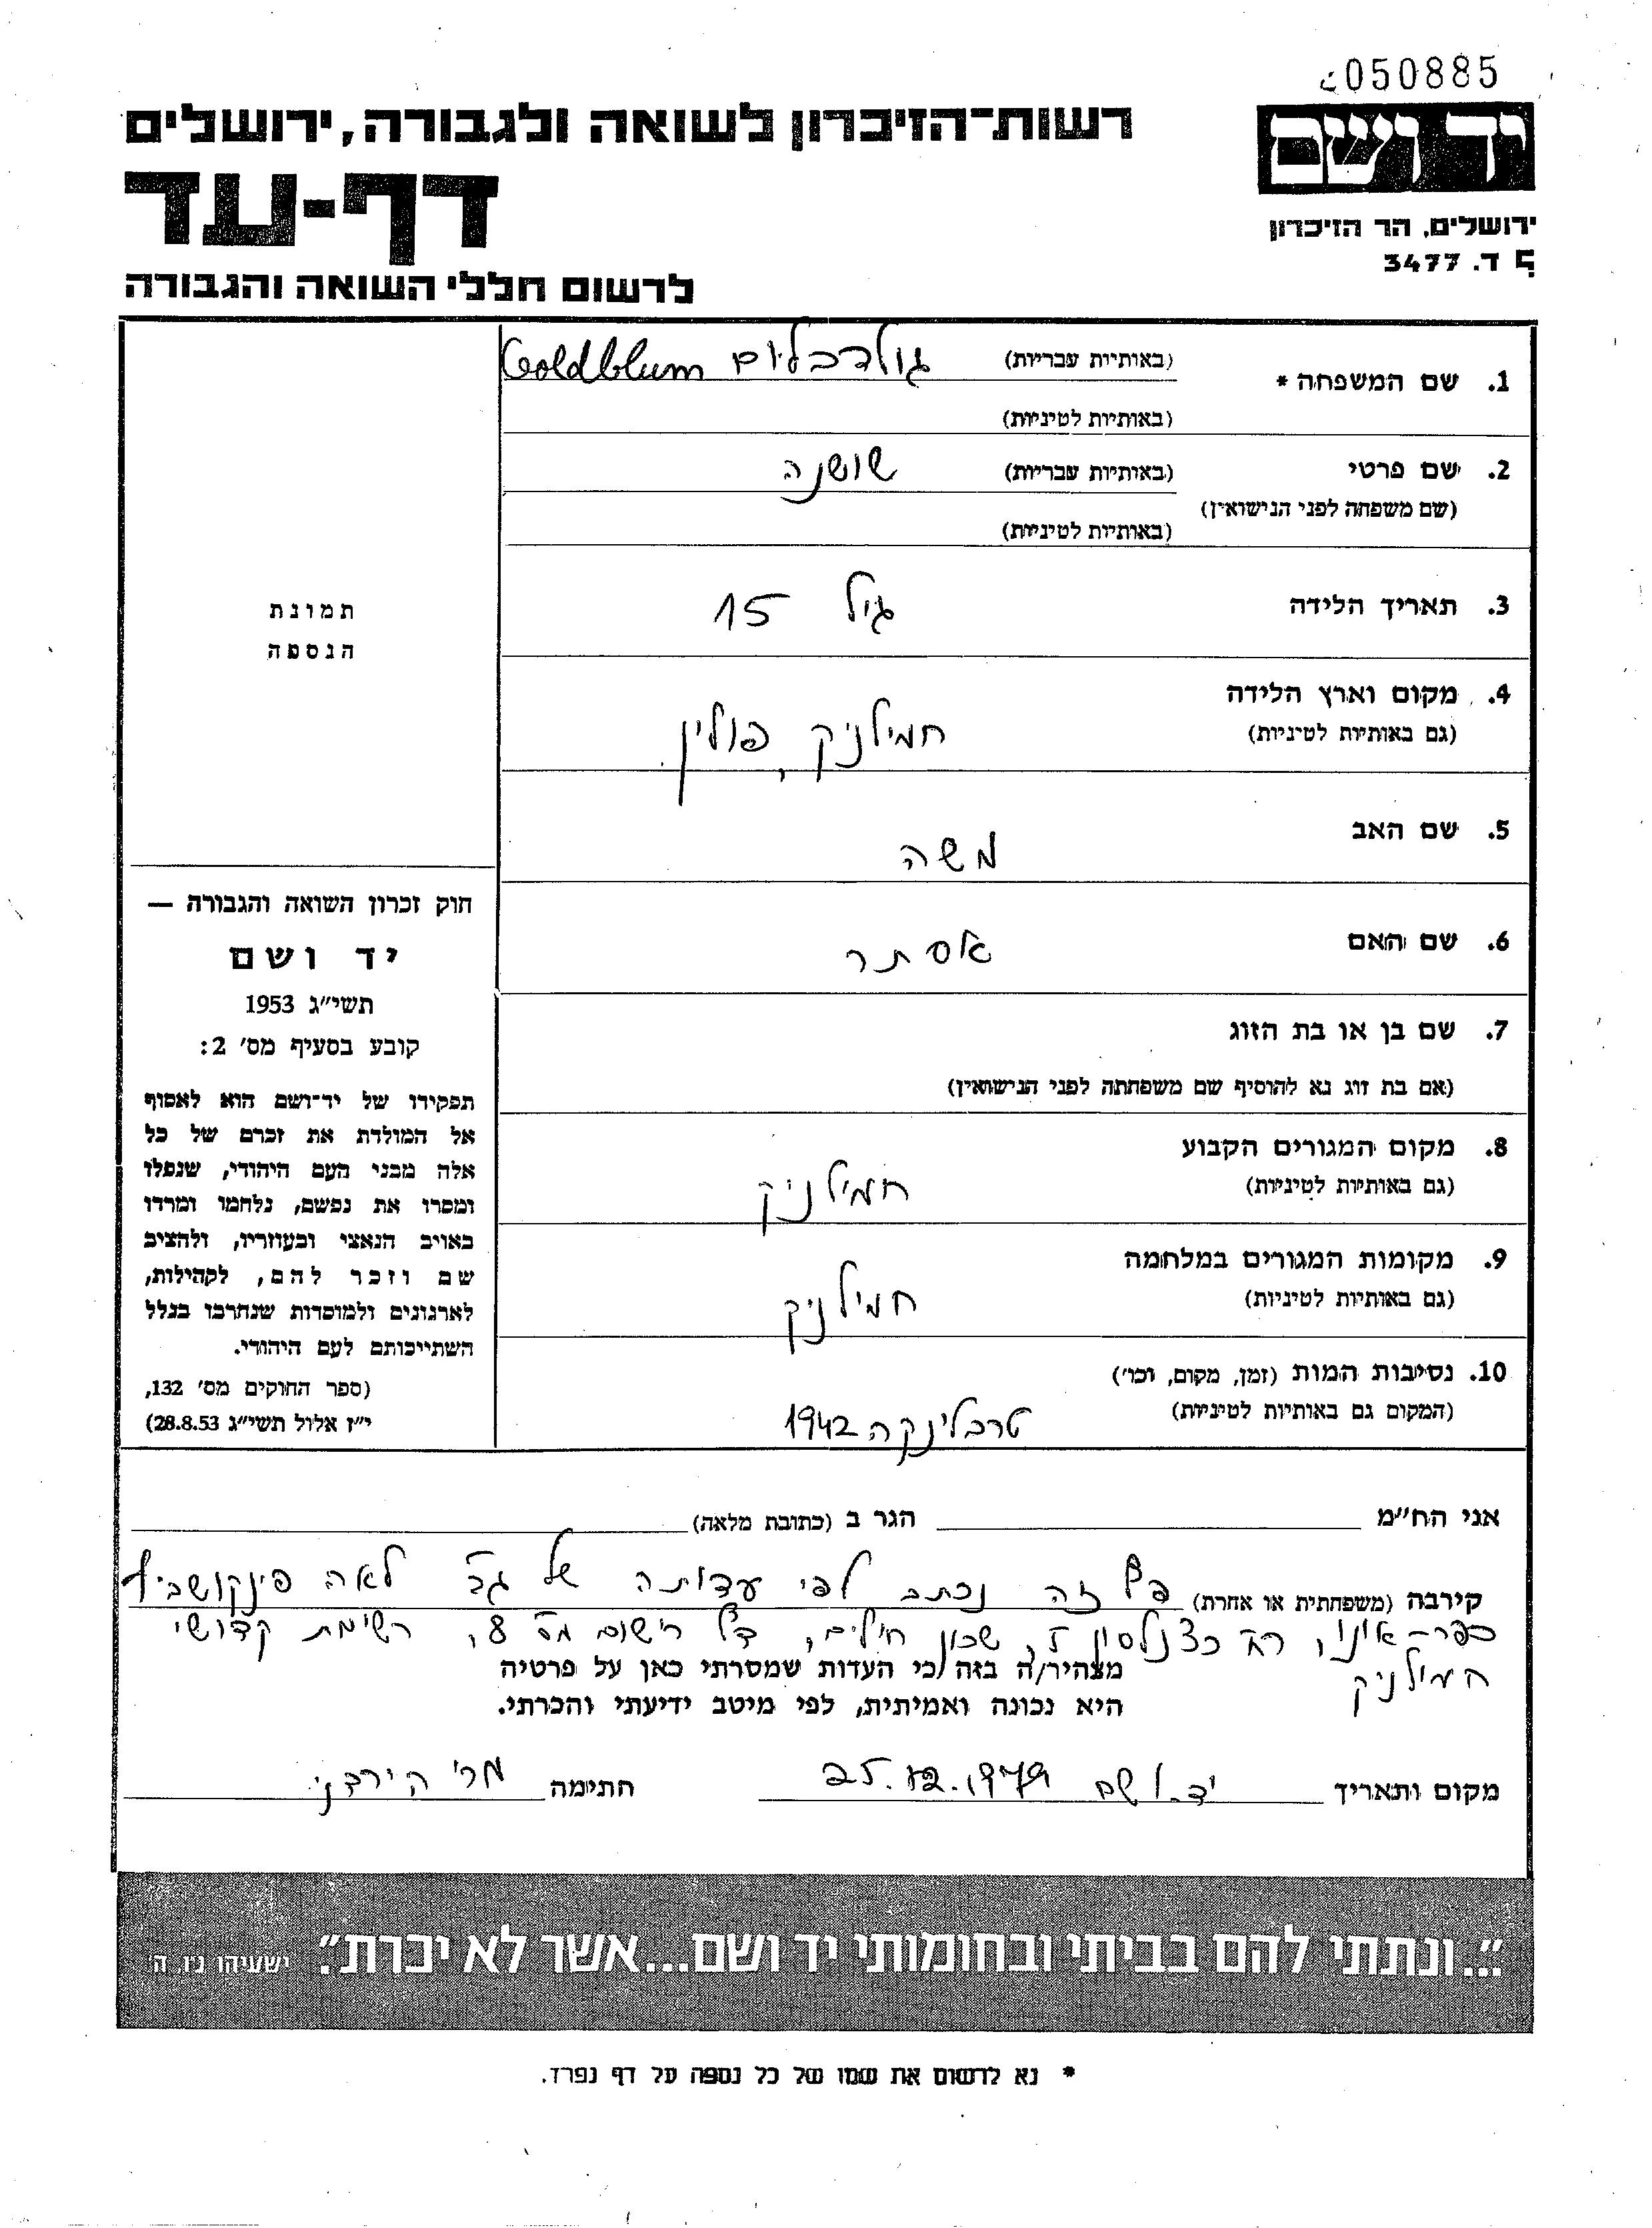 050885
יד ושם
ירושלים, הר הזיכרון
ד. 3477
רשות-הזיכרון לשואה ולגבורה, ירושלים
דף-עד
לרשום חללי השואה והגבורה
1. שם המשפחה * (באותיות עבריות) גולדבלום Goldblum
(באותיות לטיניות)
2. שם פרטי (באותיות עבריות) שושנה
(שם משפחה לפני הנישואין)
(באותיות לטיניות)
3. תאריך הלידה גיל 15
4. מקום וארץ הלידה
(גם באותיות לטיניות) חמילניק, פולין
5. שם האב משה
6. שם האם אסתר
7. שם בן או בת הזוג
(אם בת זוג נא להוסיף שם משפחתה לפני הנישואין)
8. מקום המגורים הקבוע
(גם באותיות לטיניות) חמילניק
9. מקומות המגורים במלחמה
(גם באותיות לטיניות) חמילניק
10. נסיבות המות (זמן, מקום, וכו')
(המקום גם באותיות לטיניות) טרבלינקה 1942
תמונת
הנספה
חוק זכרון השואה והגבורה —
יד ושם
תשי"ג 1953
קובע בסעיף מס' 2:
תפקידו של יד-ושם הוא לאסוף
אל המולדת את זכרם של כל
אלה מבני העם היהודי, שנפלו
ומסרו את נפשם, נלחמו ומרדו
באויב הנאצי ובעוזריו, ולהציב
שם וזכר להם, לקהילות,
לארגונים ולמוסדות שנחרבו בגלל
השתייכותם לעם היהודי.
(ספר החוקים מס' 132,
י"ז אלול תשי"ג 28.8.53)
אני הח"מ הגר ב (כתובת מלאה)
קירבה (משפחתית או אחרת) זה נכתב לפי עדותה של גב' לאה פינקושביץ
רח' כצנלסון 5, שכון חילים, רישום מס' 8, רשימת קדושי
חמילניק
מצהיר/ה בזה כי העדות שמסרתי כאן על פרטיה
היא נכונה ואמיתית, לפי מיטב ידיעתי והכרתי.
מקום ותאריך יד ושם 25. חתימה
"...ונתתי להם בביתי ובחומותי יד ושם...אשר לא יכרת". ישעיהו נ"ו, ה'
* נא לרשום את שמו של כל נספה על דף נפרד.